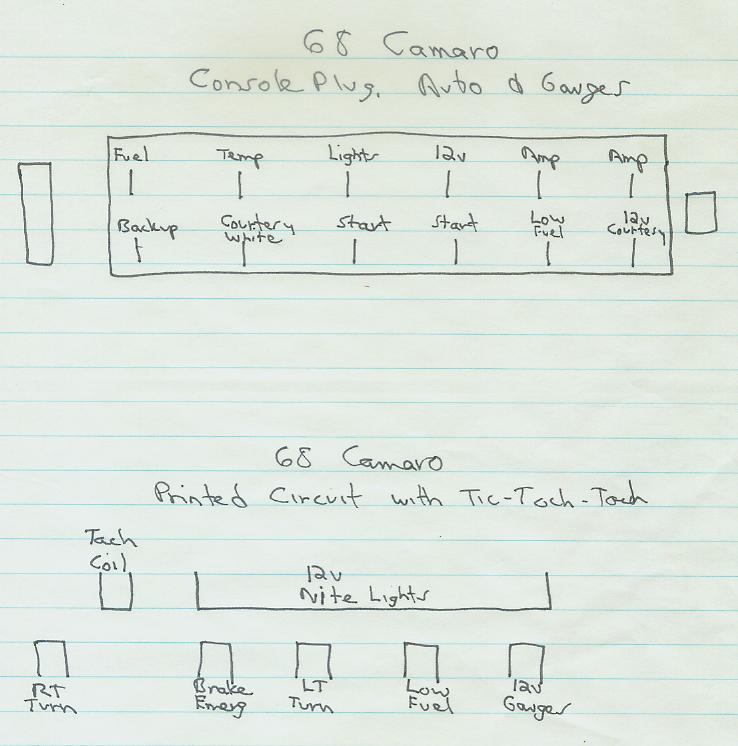 68 Camaro
Console Plug. Auto & Gauges
Fuel Temp Lights 12v Amp Amp
Backup Courtery White Start Start Low Fuel 12v Courtesy
68 Camaro
Printed Circuit with Tic-Toch-Toch
Tach
Coil
12v
Nite Lights
RT Turn Brake Emerg LT Turn Low Fuel 12v Gauges